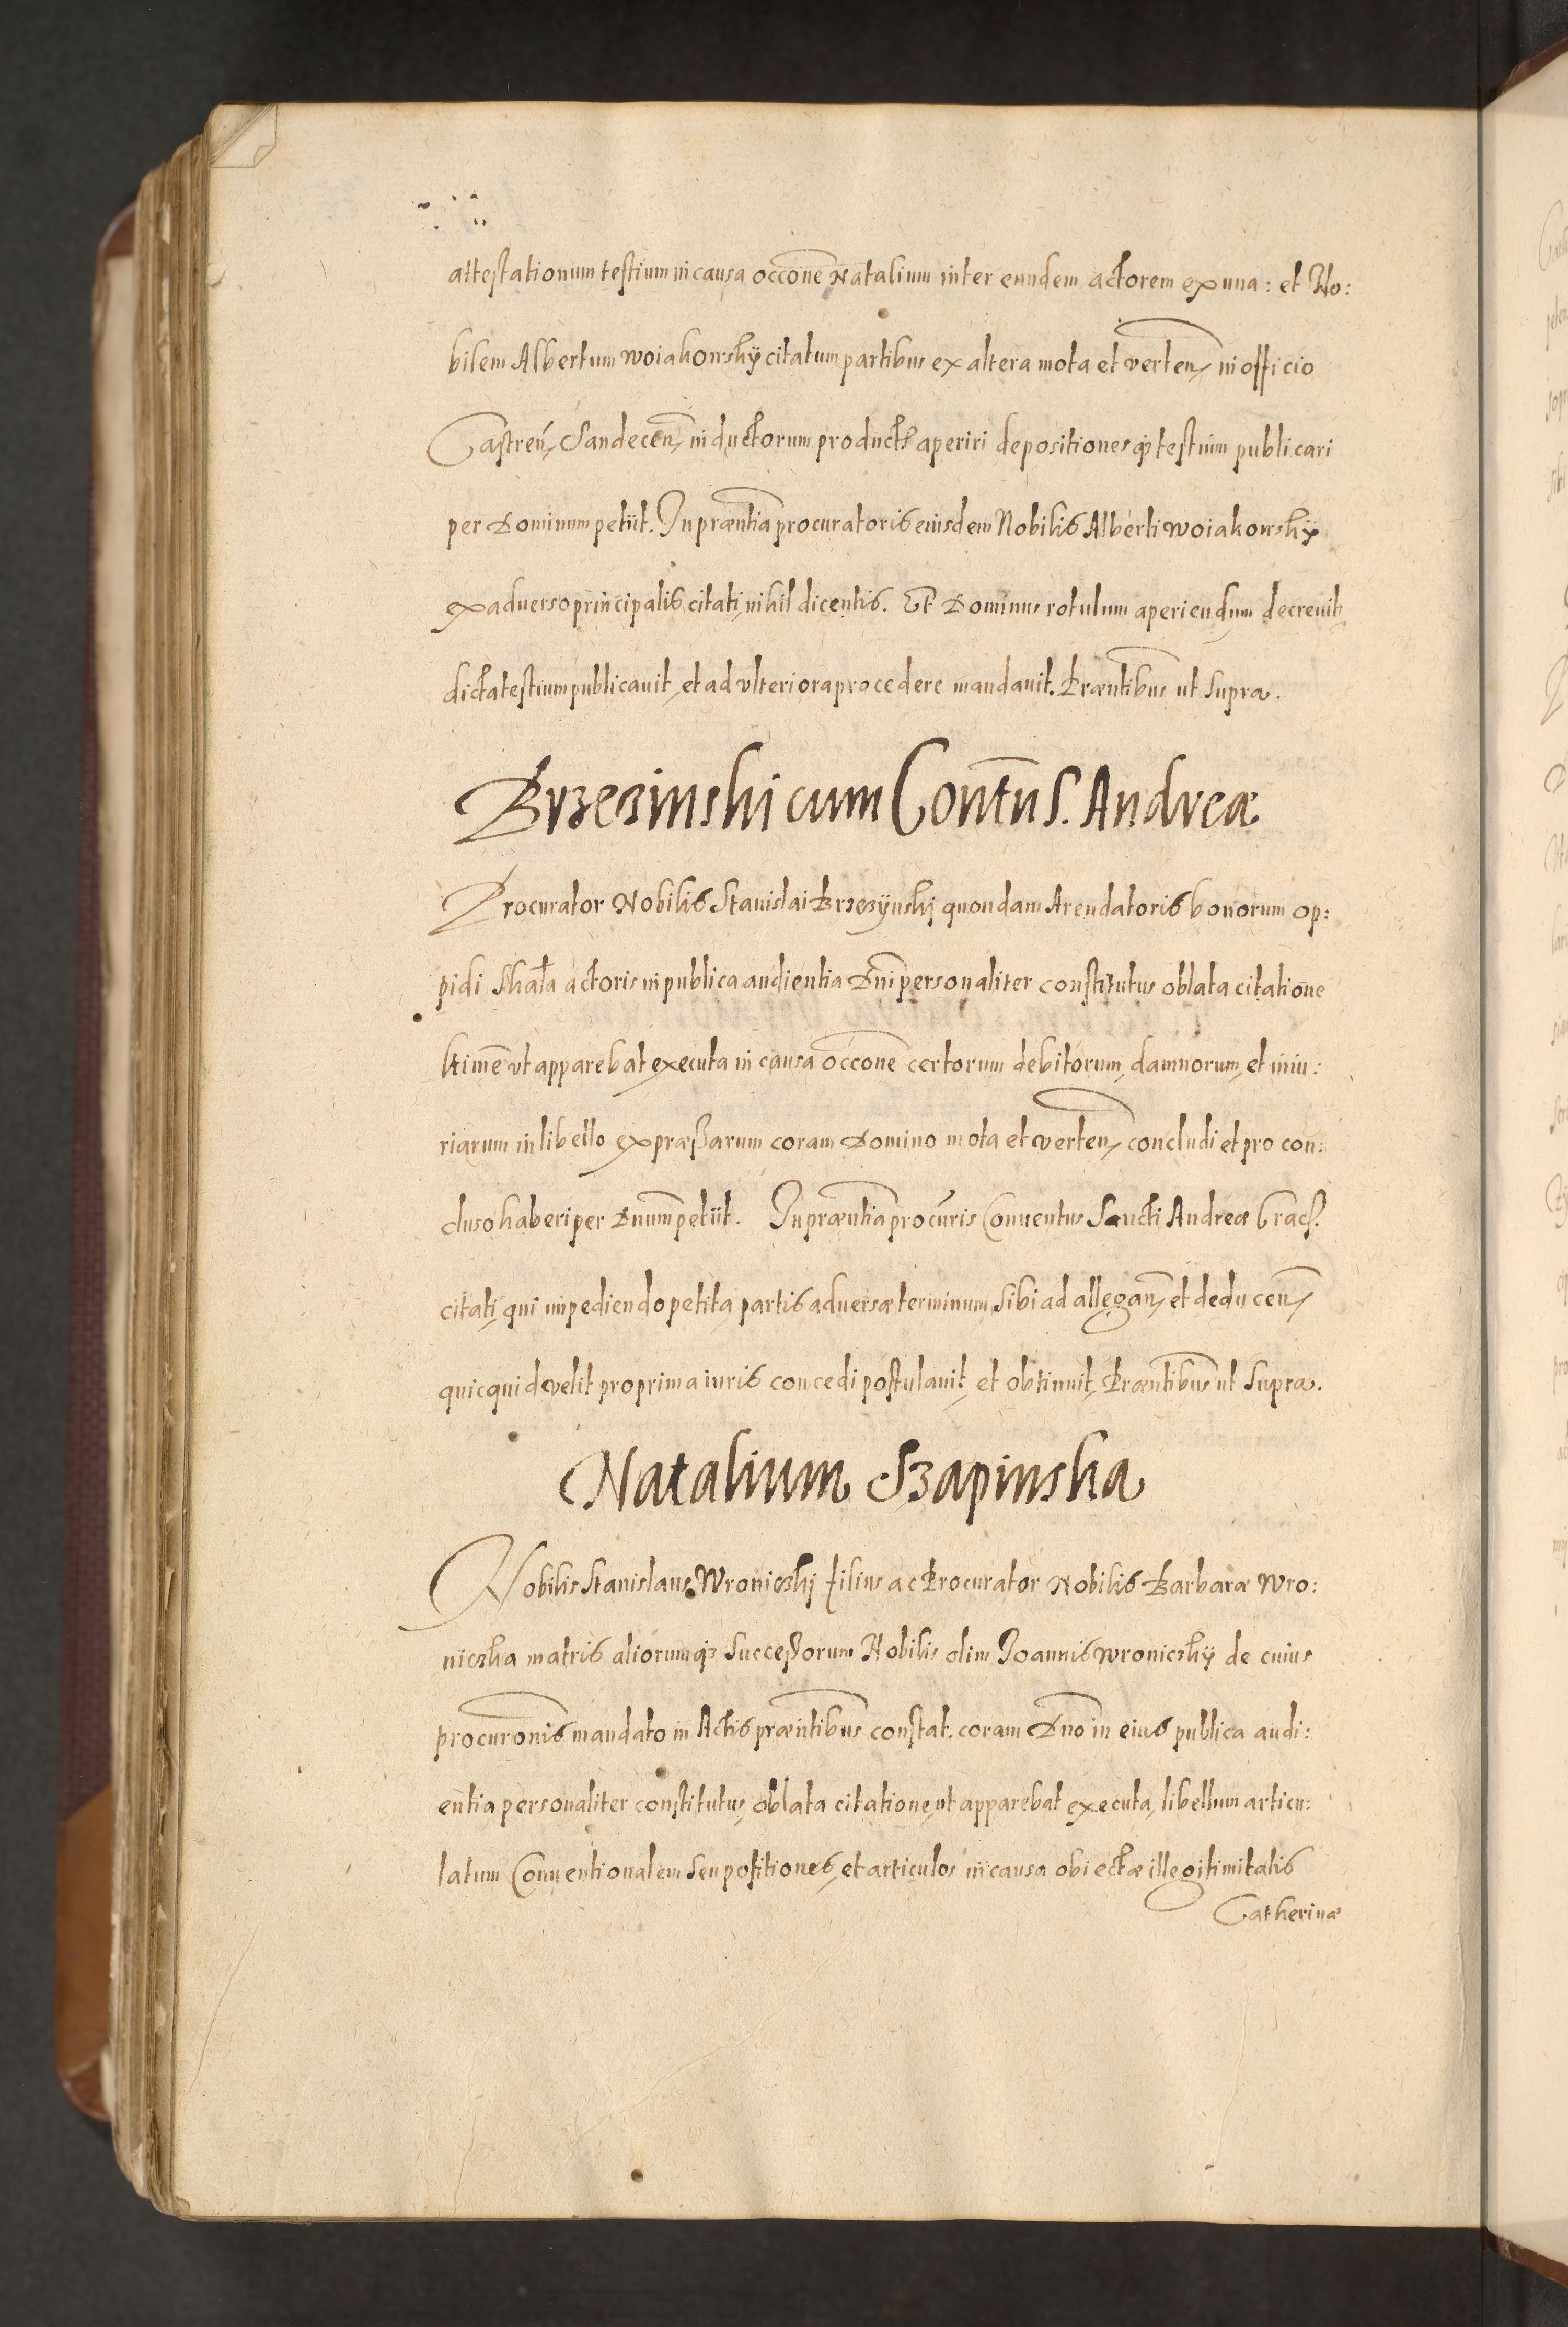 attestationum testium in causa occōne Natalium inter eundem actorem ex una: et No:
bilem Albertum Woiakowskÿ citatum partibus ex altera mota et verteñ, in officio
Castreñ, Sandeceñ, inductorum product: aperiri depositiones qȝ testium publicari
per Dominum petiit. In præntia procuratoris eiusdem Nobilis Alberti Woiakowskÿ
ex adverso principalis citati, nihil dicentis. Et Dominus rotulum aperiendum decreuit,
dicta testium publicauit, et ad vlteriora procedere mandauit. Præntibus ut supra.
Brzezinski cum Conūtu S. Andreæ
Procurator Nobilis Stanislai Brzezÿnskj quondam Arendatoris bonorum op:
pidi Skała actoris in publica audientia Dñi personaliter constitutus oblata citatione
ltimē vt apparebat executa in causa occōne certorum debitorum, damnorum, et iniu:
riarum in libello expræßarum coram Domino mota et verteñ, concludi et pro con:
cluso haberi per Dnum petiit. In præntia procuris Conuentus Sancti Andreæ Crac.
citati, qui impediendo petita partis aduersæ terminum, sibi ad allegañ, et deduceñ,
quicquid velit pro prima iuris concedi postulauit, et obtinuit, Præntibus ut supra.
Natalium Szapinska
Nobilis Stanislaus Wroniczkj filius ac Procurator Nobilis Barbaræ Wro:
niczka matris aliorumqȝ Succeßorum Nobilis olim Joannis Wroniczkÿ de cuius
procuronis mandato in Actis præntibus constat. coram Dno in eius publica audi:
entia personaliter constitutus, oblata citatione, ut apparebat executa, libellum articu:
latum Conuentionalem seu positiones, et articulos in causa obiectæ illegitimitatis
Catherinæ